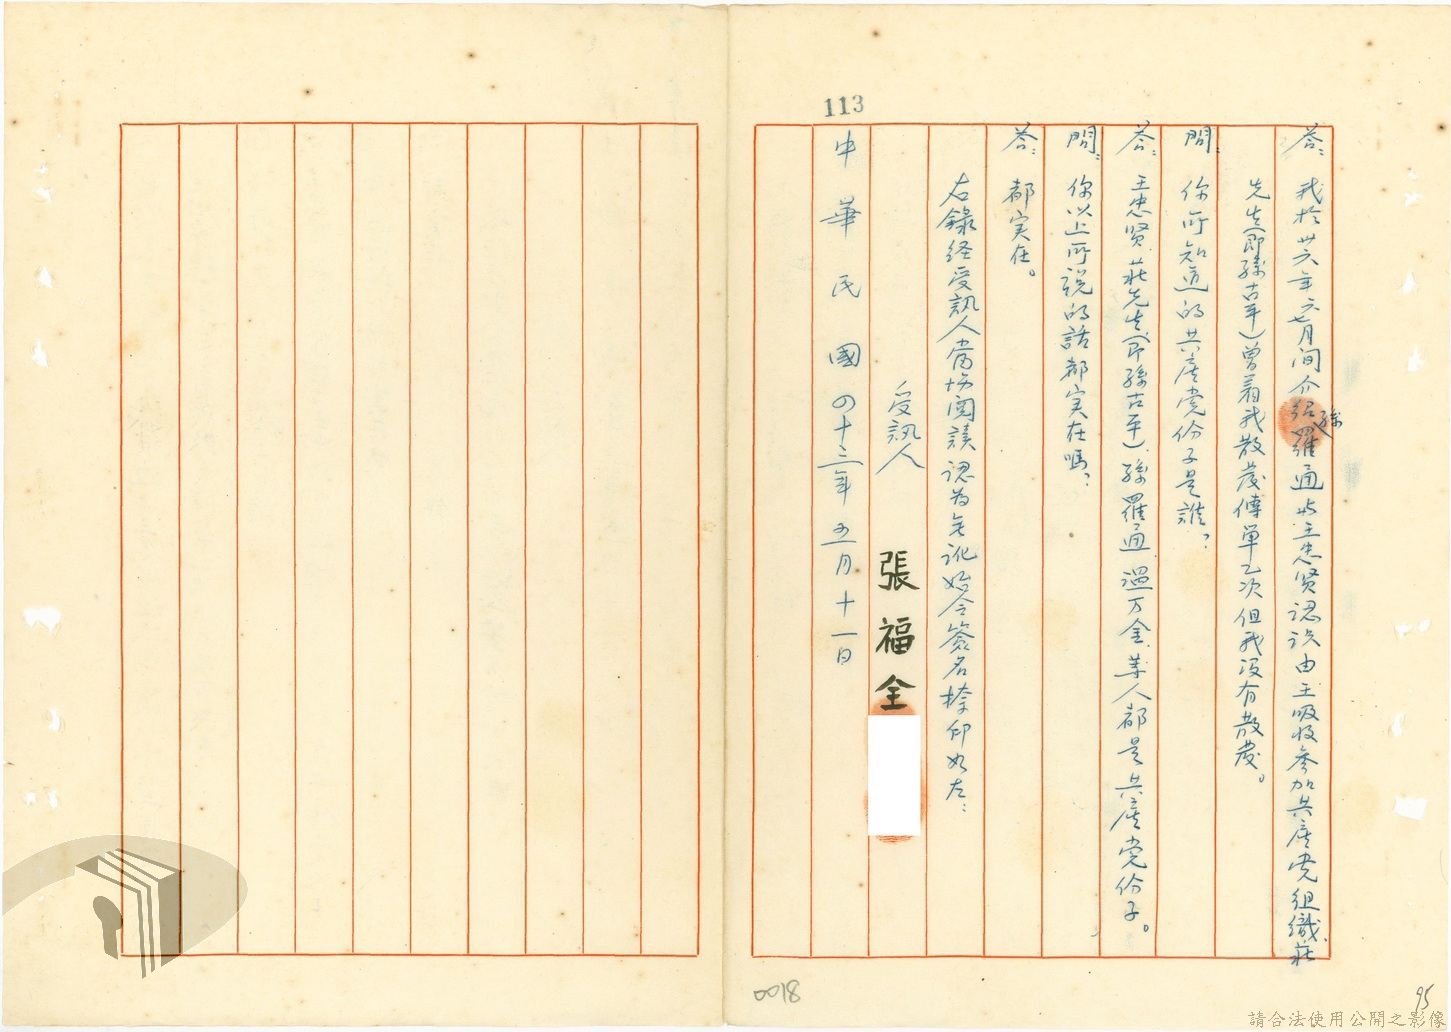 113
答：我於卅六年六七月間介紹孫羅通与王忠贤認识由王吸收参加共產党組織、莊
先生（即孫古平）曾着我散發傳單乙次但我没有散發。
問：你所知道的共產党份子是誰？
答：王忠贤、莊先生（即孫古平）、孫羅通、温万金、某人都是共產党份子。
問：你以上所説的話都实在嗎？
答：都实在。
右錄经受訊人當場閱讀認为无訛始令簽名捺印如左：
受訊人 張福全
中華民國四十三年五月十一日
0018
95
請合法使用公開之影像